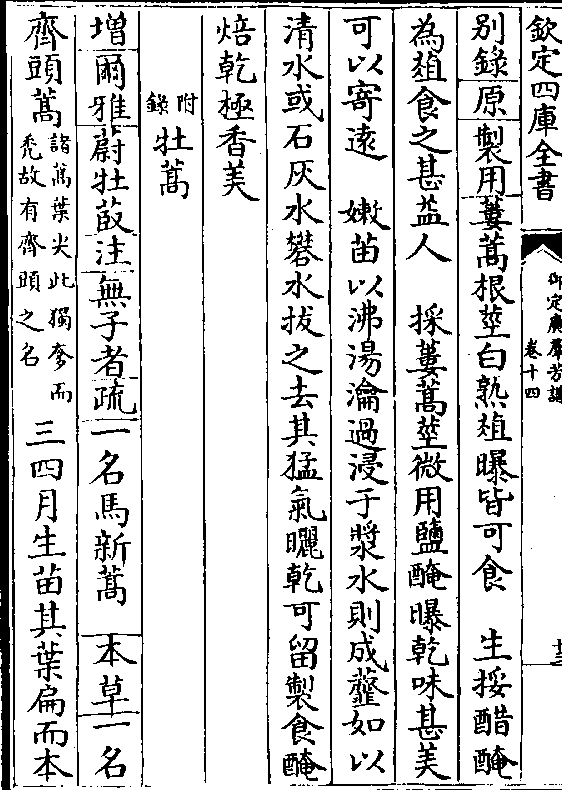 欽定四庫全書
御定廣羣芳譜
卷十四
別錄原製用蔞蒿根莖白熟葅曝皆可食　生挼醋醃
為葅食之甚益人　採蔞蒿莖微用鹽醃曝乾味甚美
可以寄遠　嫩苗以沸湯瀹過浸于漿水則成虀如以
清水或石灰水礬水拔之去其猛氣曬乾可留製食醃
焙乾極香美
附錄牡蒿
增爾雅蔚牡菣注無子者疏一名馬新蒿　本草一名
齊頭蒿諸蒿葉尖此獨奓而禿故有齊頭之名　三四月生苗其葉扁而本